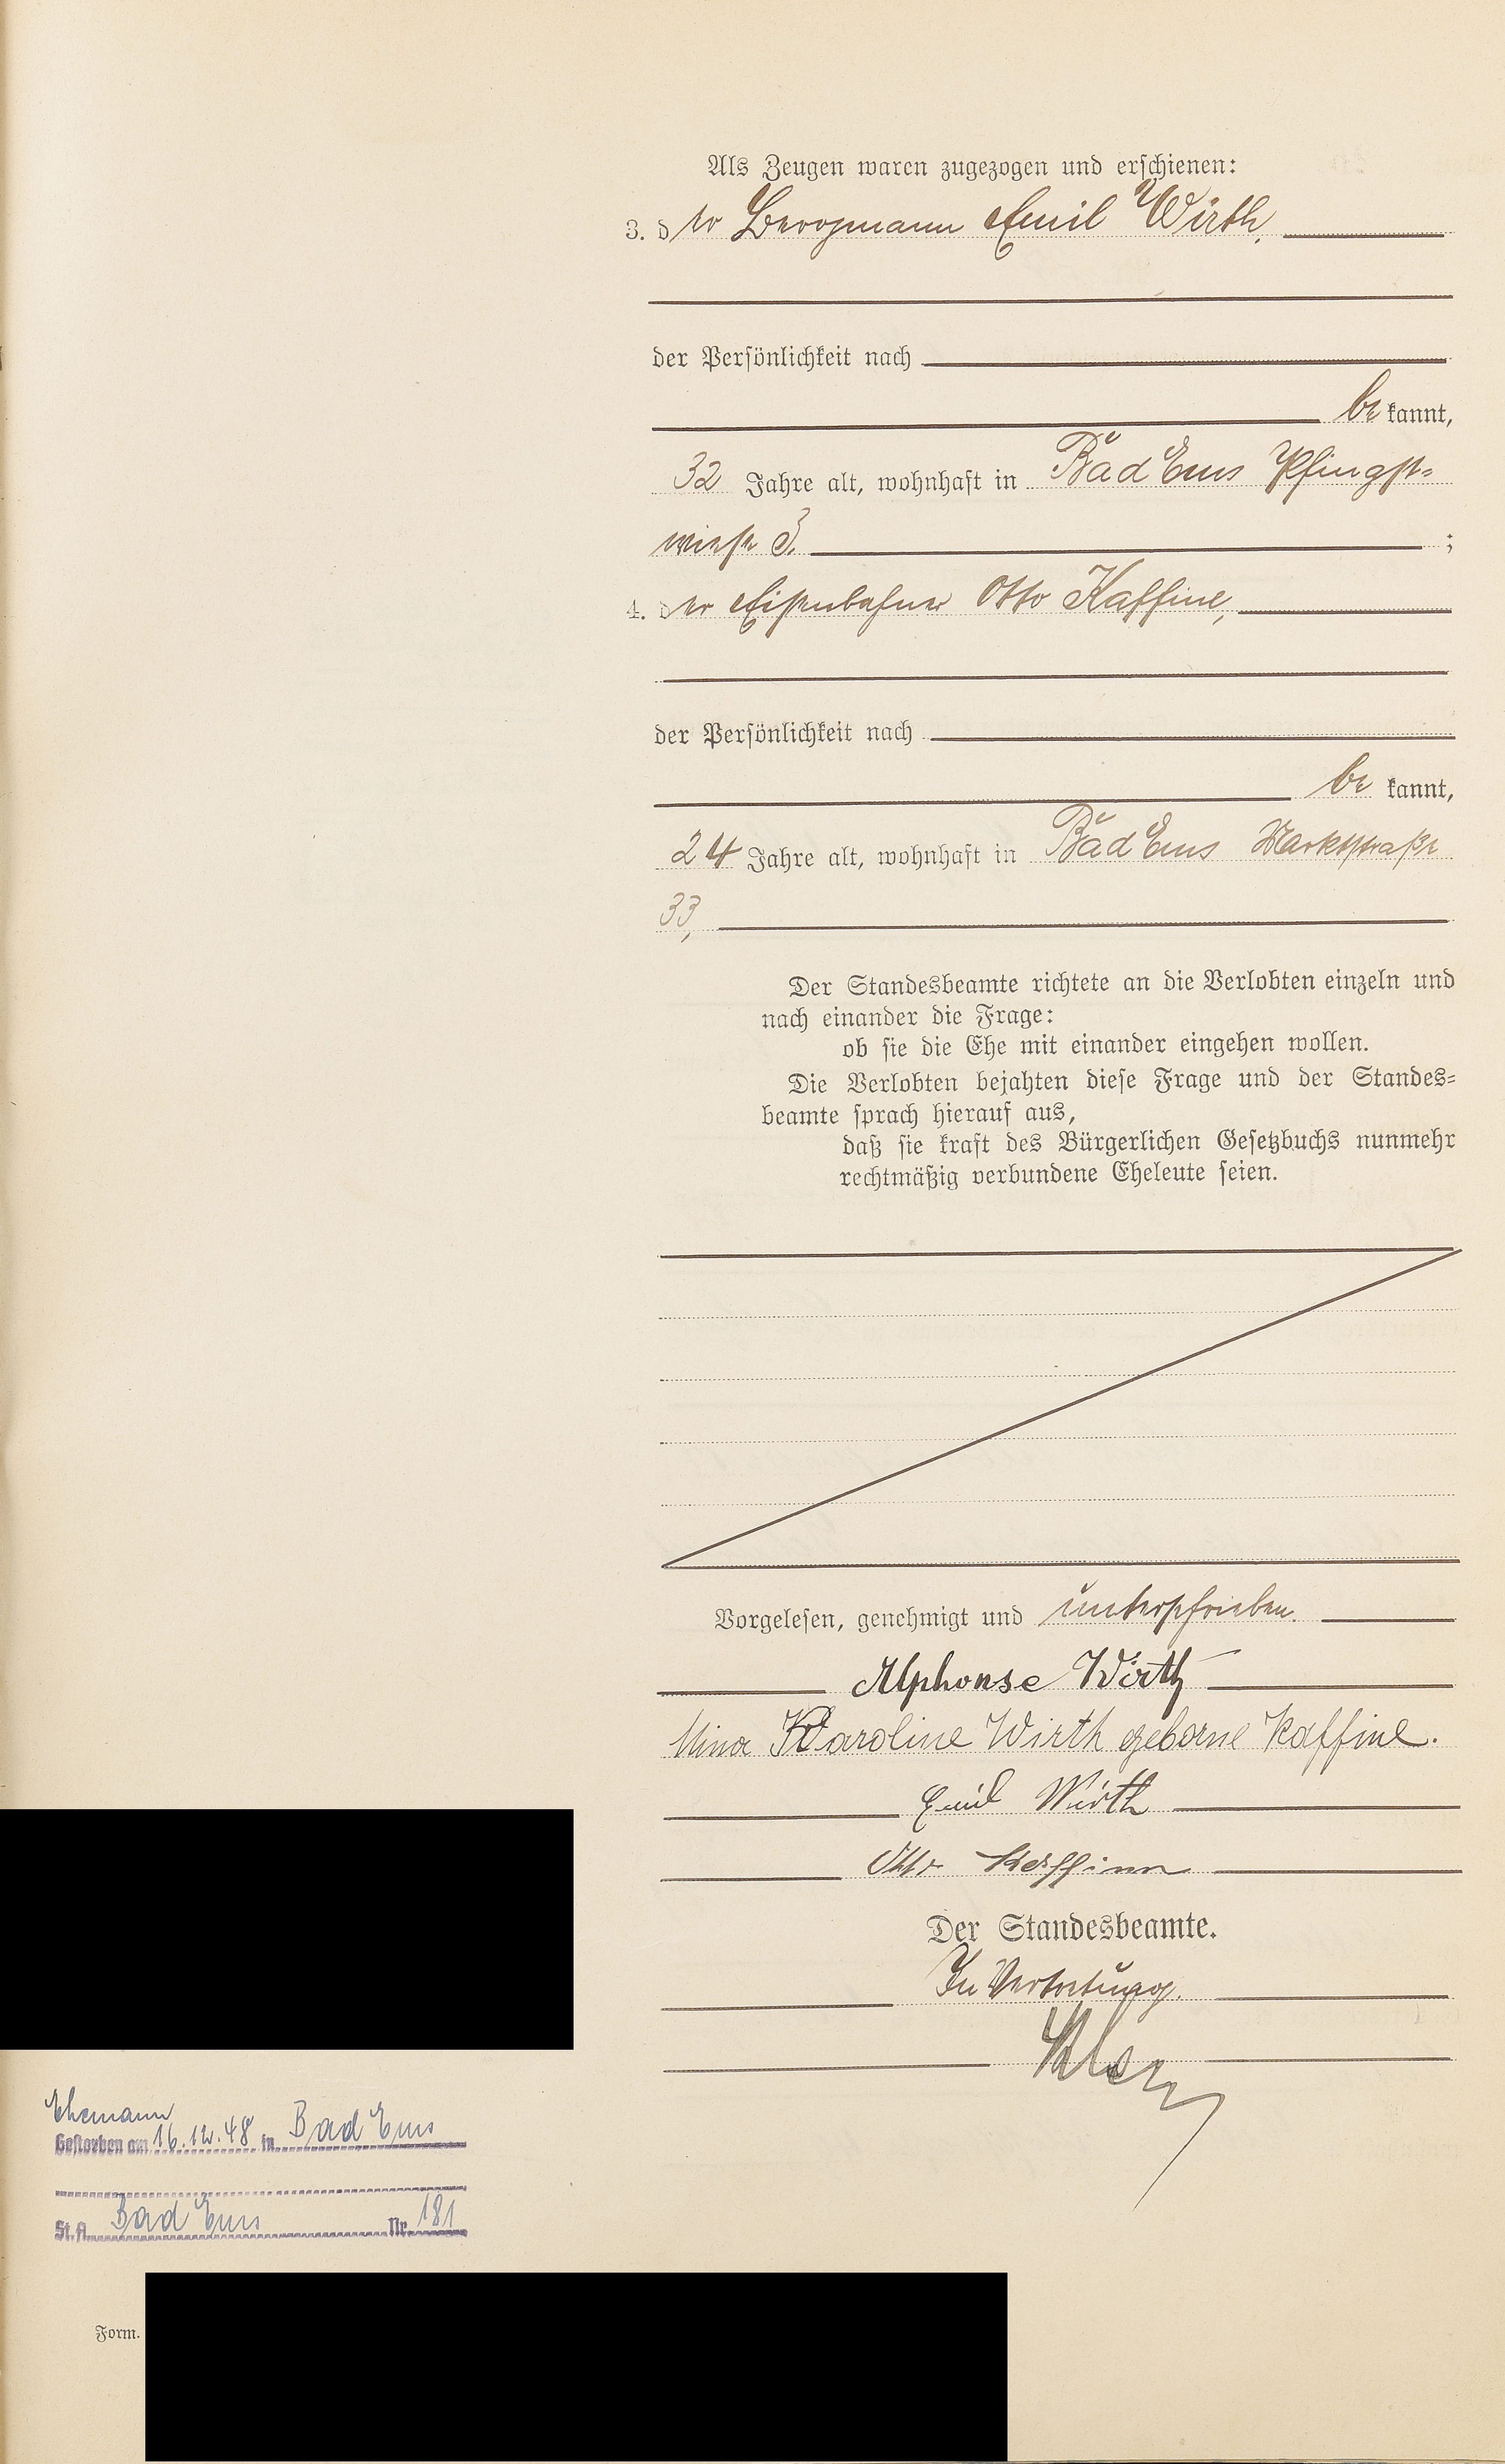 Als Zeugen waren zugezogen und erschienen:
3. der Bergmann Emil Wirth,
der Persönlichkeit nach
bekannt,
32 Jahre alt, wohnhaft in Bad Ems Pfingst=
wiese 3. ;
4. der Eisenbahner Otto Kaffine,
der Persönlichkeit nach
be kannt,
24 Jahre alt, wohnhaft in Bad Ems Markstraße
33,
Der Standesbeamte richtete an die Verlobten einzeln und
nach einander die Frage:
ob sie die Ehe mit einander eingehen wollen.
Die Verlobten bejahten diese Frage und der Standes=
beamte sprach hierauf aus,
daß sie kraft des Bürgerlichen Gesetzbuchs nunmehr
rechtmäßig verbundene Eheleute seien.
Vorgelesen, genehmigt und unterschrieben.
Alphonse Wirth
Mina Karoline Wirth geborne Kaffine.
Emil Wirth
Otto Kaffine
Der Standesbeamte.
In Vertretung.
Ehemann
Gestorben am 16.12.48 in Bad Ems
St.A. Bad Ems Nr. 181
Form.